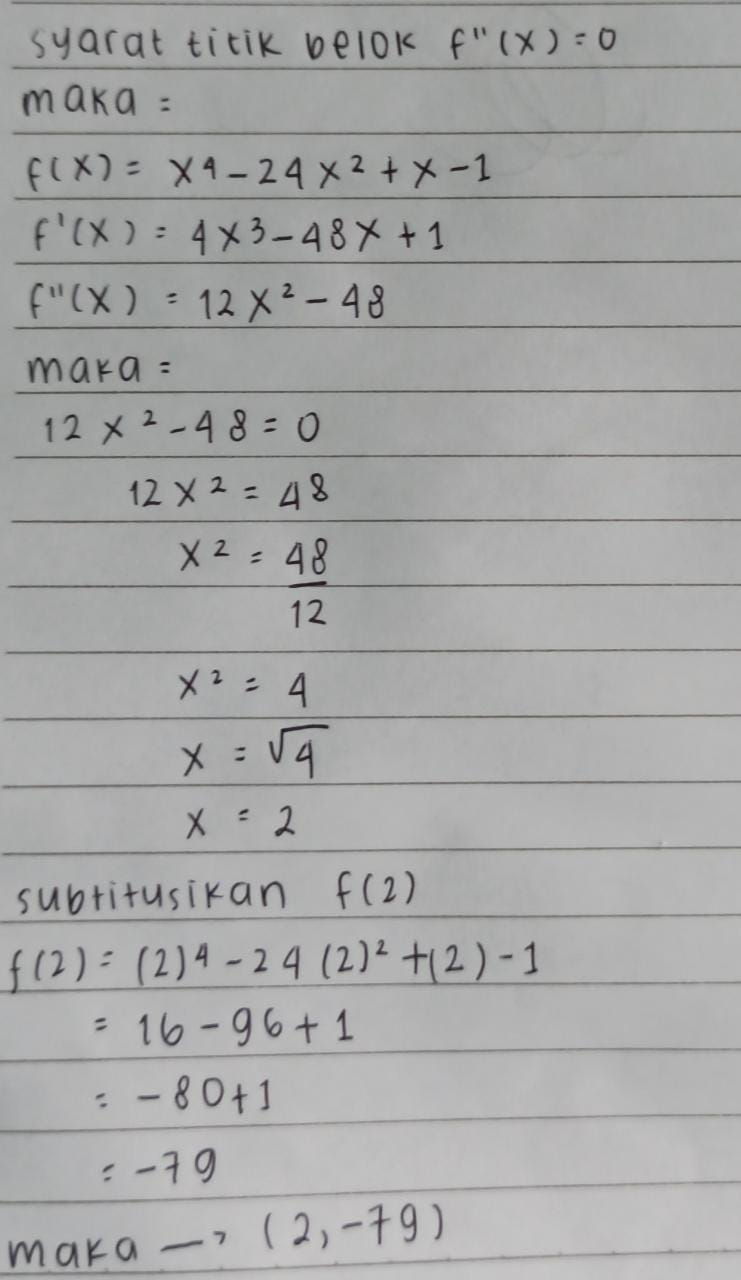 syarat titik belok f"(x) = 0
maka =
f(x) = x⁴ - 24x² + x - 1
f'(x) = 4x³ - 48x + 1
f"(x) = 12x² - 48
maka =
12x² - 48 = 0
12x² = 48
x² = 48
12
x² = 4
x = √4
x = 2
subtitusikan f(2)
f(2) = (2)⁴ - 24 (2)² + (2) - 1
= 16 - 96 + 1
= -80 + 1
= -79
maka → (2, -79)